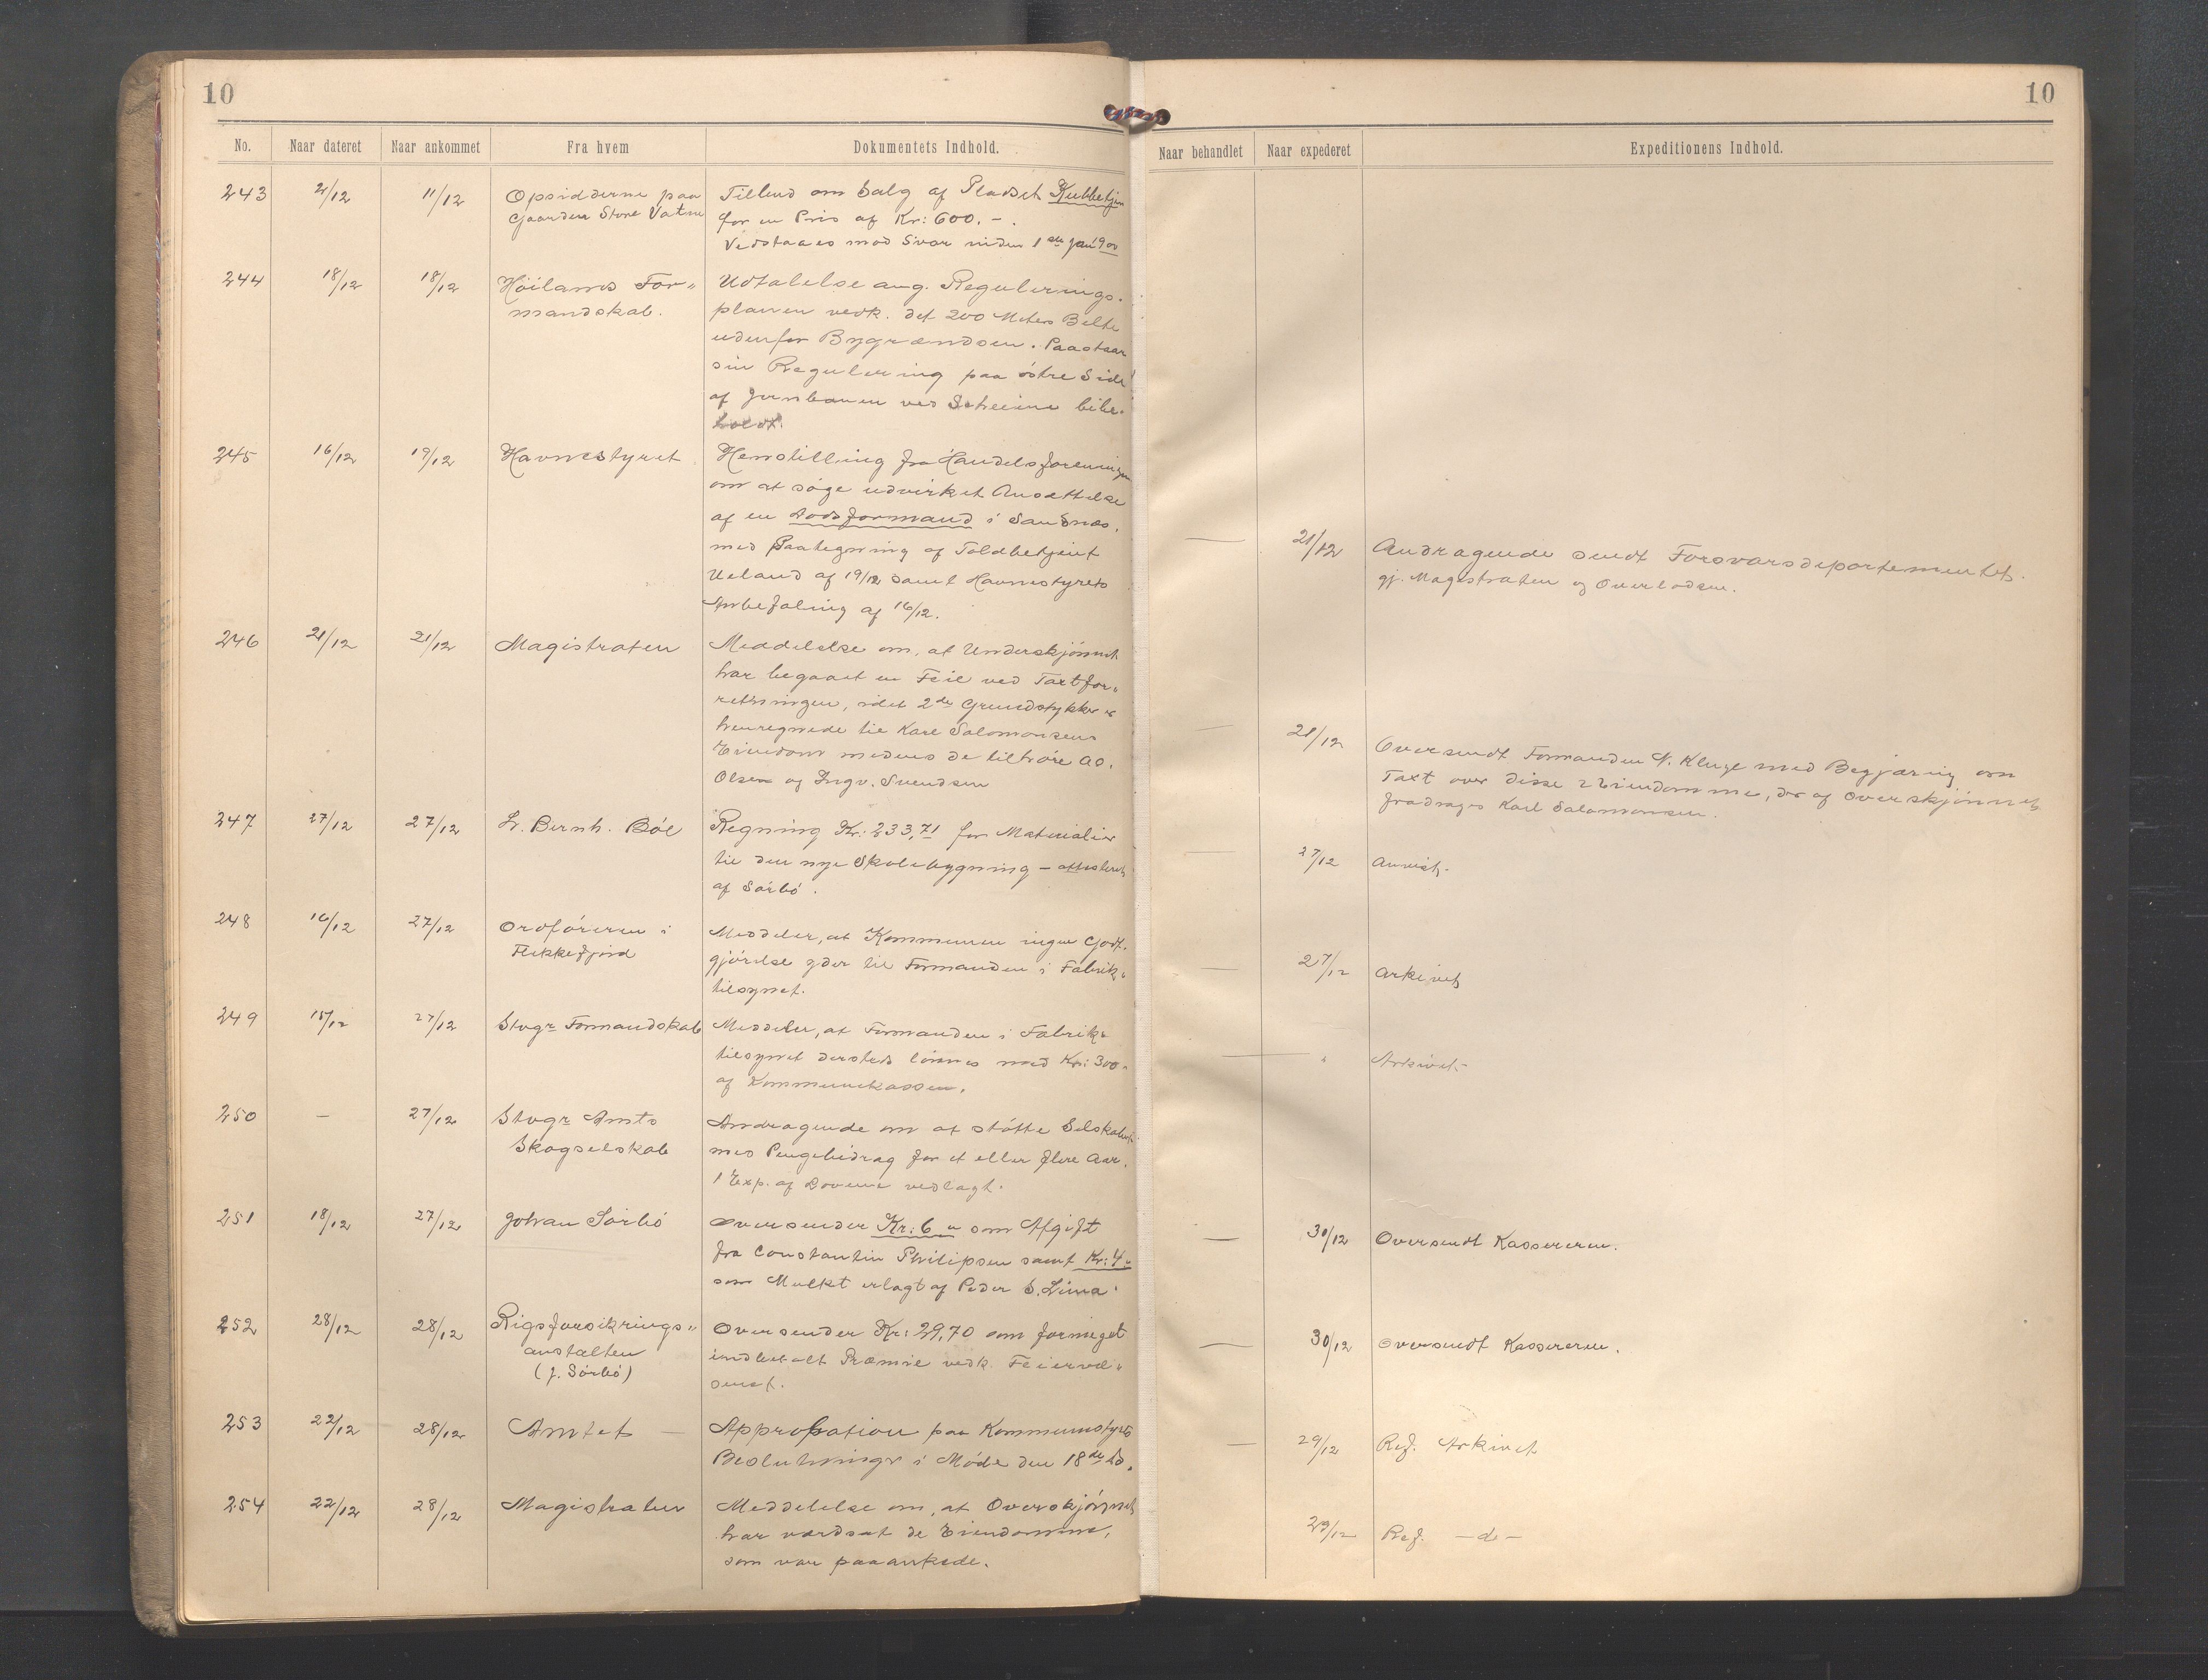 10
No.
Naar dateret
Naar ankommet
Fra hvem
Dokumentets Indhold.
243
2/12
11/12
Opsidderne paa
Gaarden Store Vatne
Tilbud om Salg af Pladset Kubbetjern
for en Pris af Kr: 600. - .
Vedstaaes mod Svar inden 1ste Jan 1900
244
18/12
18/12
Höilands For-
mandskab.
Udtalelse ang. Regulerings-
planen vedk. det 200 Meters Belte
udenfor Bygrændsen. Paastaar
sin Regulering paa östre Side
af Jernbanen ved Scheiene bibe-
holdt.
245
16/12
19/12
Havnestyret
Henstilling fra Handelsforeningen
om at söge udvirket Ansættelse
af en Lodsformand i Sandnæs,
med Paategning af Toldbetjent
Ueland af 19/12 samt Havnestyrets
Anbefaling af 16/12.
246
21/12
21/12
Magistraten
Meddelelse om, at Underskjönnet
har begaaet en Feil ved Taxtfor-
retningen, idet 2de Grundstykker er
henregnede til Karl Salomonsens
Eiendom medens de tilhöre Ao.
Olsen og Ingv. Svendsen
247
27/12
27/12
L. Bernh. Böe
Regning Kr: 233,71 for Materialier
til den nye Skolebygning - attesteret
af Sörbö.
248
16/12
27/12
Ordföreren i
Flekkefjord
Meddeler, at Kommunen ingen Godt-
gjörelse yder til Formanden i Fabrik-
tilsynet.
249
15/12
27/12
Stvgr Formandskab
Meddeler, at Formanden i Fabrik-
tilsynet dersteds lönnes med Kr: 300.-
af Kommunekassen.
250
-
27/12
Stvgr Amts
Skogselskab
Andragende om at stötte Selskabet
med Pengebidrag for et eller flere Aar.
1 Exp. af Lovene vedlagt.
251
18/12
27/12
Johan Sörbö
Oversender Kr: 6 " som Afgift
fra Constantin Philipsen samt Kr: 4 "
som Mulkt erlagt af Peder S. Lima.
252
28/12
28/12
Rigsforsikrings-
anstalten
(J. Sörbö)
Oversender Kr: 29,70 som formeget
indbetalt Præmie vedk. Feiervæ-
senet.
253
22/12
28/12
Amtet -
Approbation paa Kommunestyrets
Beslutninger i Möde den 18de ds.
254
22/12
28/12
Magistraten
Meddelelse om, at Overskjönnet
har værdsat de Eiendomme,
som var paaankede.
10
Naar behandlet
Naar expederet
Expeditionens Indhold.
—
21/12
Andragende sendt Forsvarsdepartementet.
gj. Magistraten og Overlodsen.
—
21/12
Oversendt Formanden N. Kluge med Begjæring om
Taxt over disse 2 Eiendomme, der af Overskjönnet
fradrages Karl Salomonsen.
—
27/12
Anvist.
—
27/12
Arkivet
—
"
Arkivet
—
30/12
Oversendt Kassereren.
—
30/12
Oversendt Kassereren.
—
29/12
Ref. Arkivet
29/12
Ref. - d -